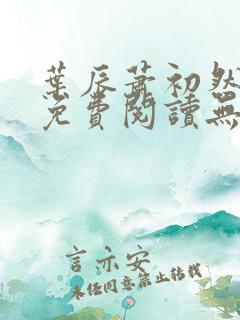 葉辰蕭初然
免費閱讀無
言亦安
未經同意禁止轉載